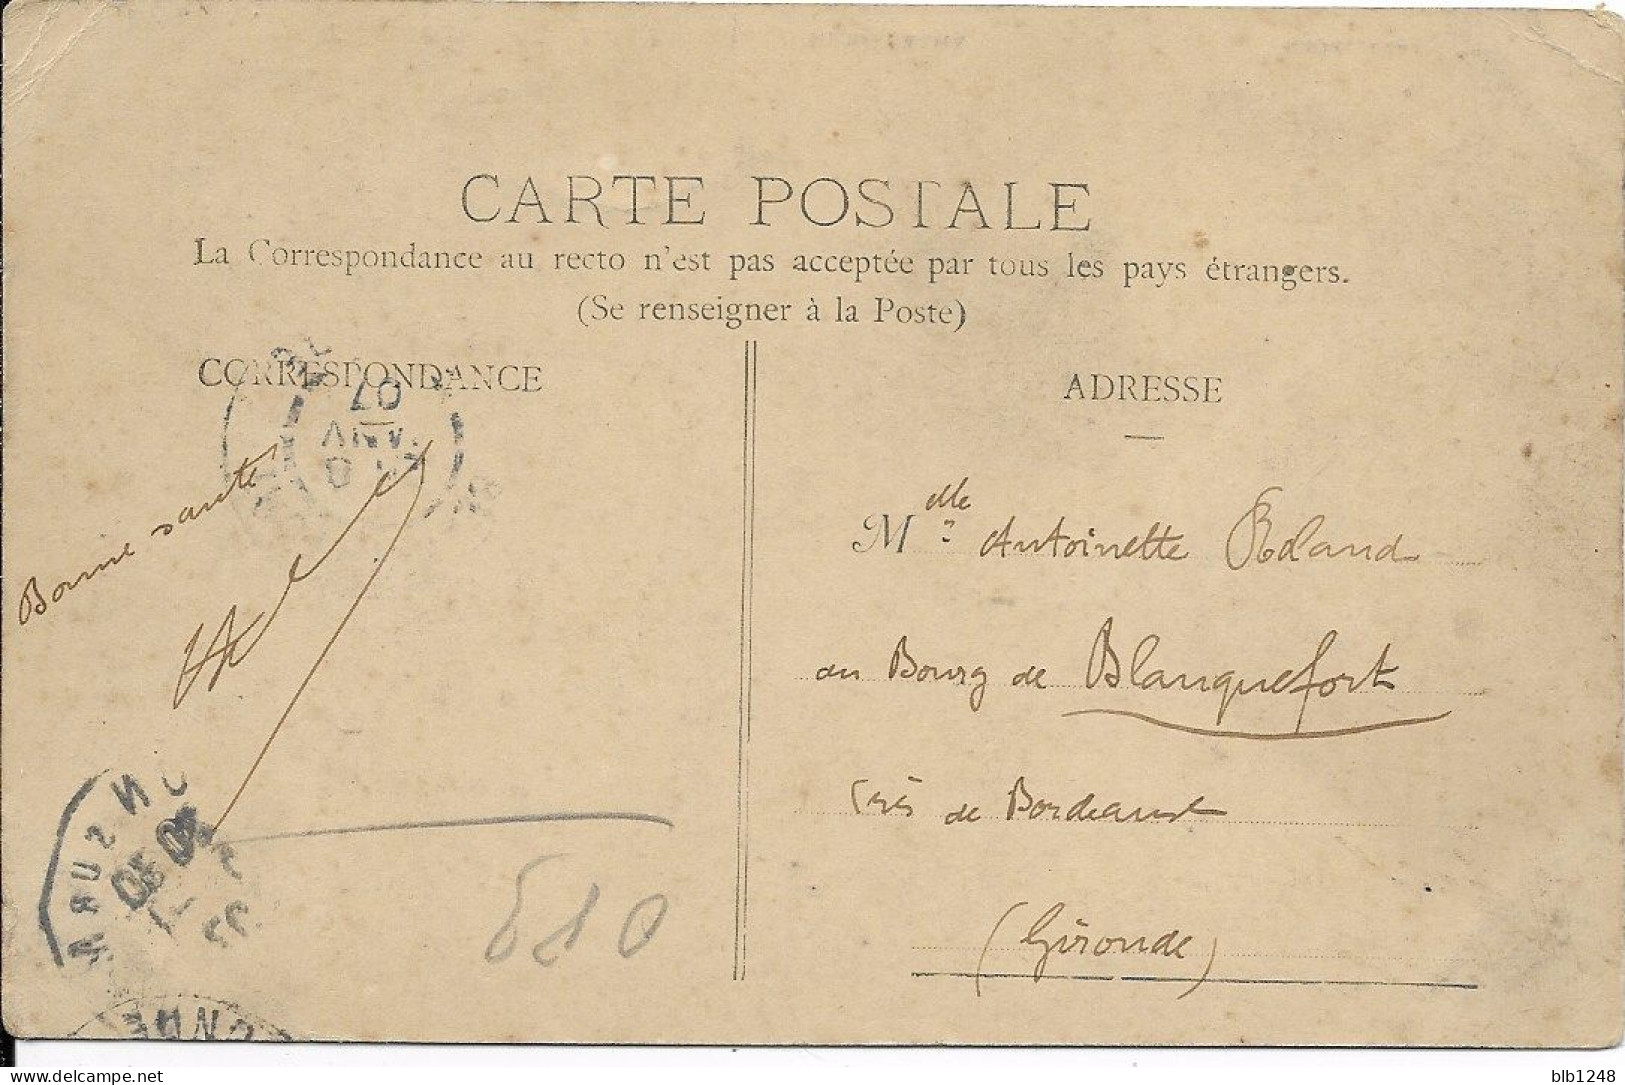 CARTE POSTALE
La Correspondance au recto n'est pas acceptée par tous les pays étrangers.
(Se renseigner à la Poste)
CORRESPONDANCE
ADRESSE
07
Bonne santé
Melle Antoinette Roland
au Bourg de Blanquefort
près de Bordeaux
(Gironde)
510
blb1248